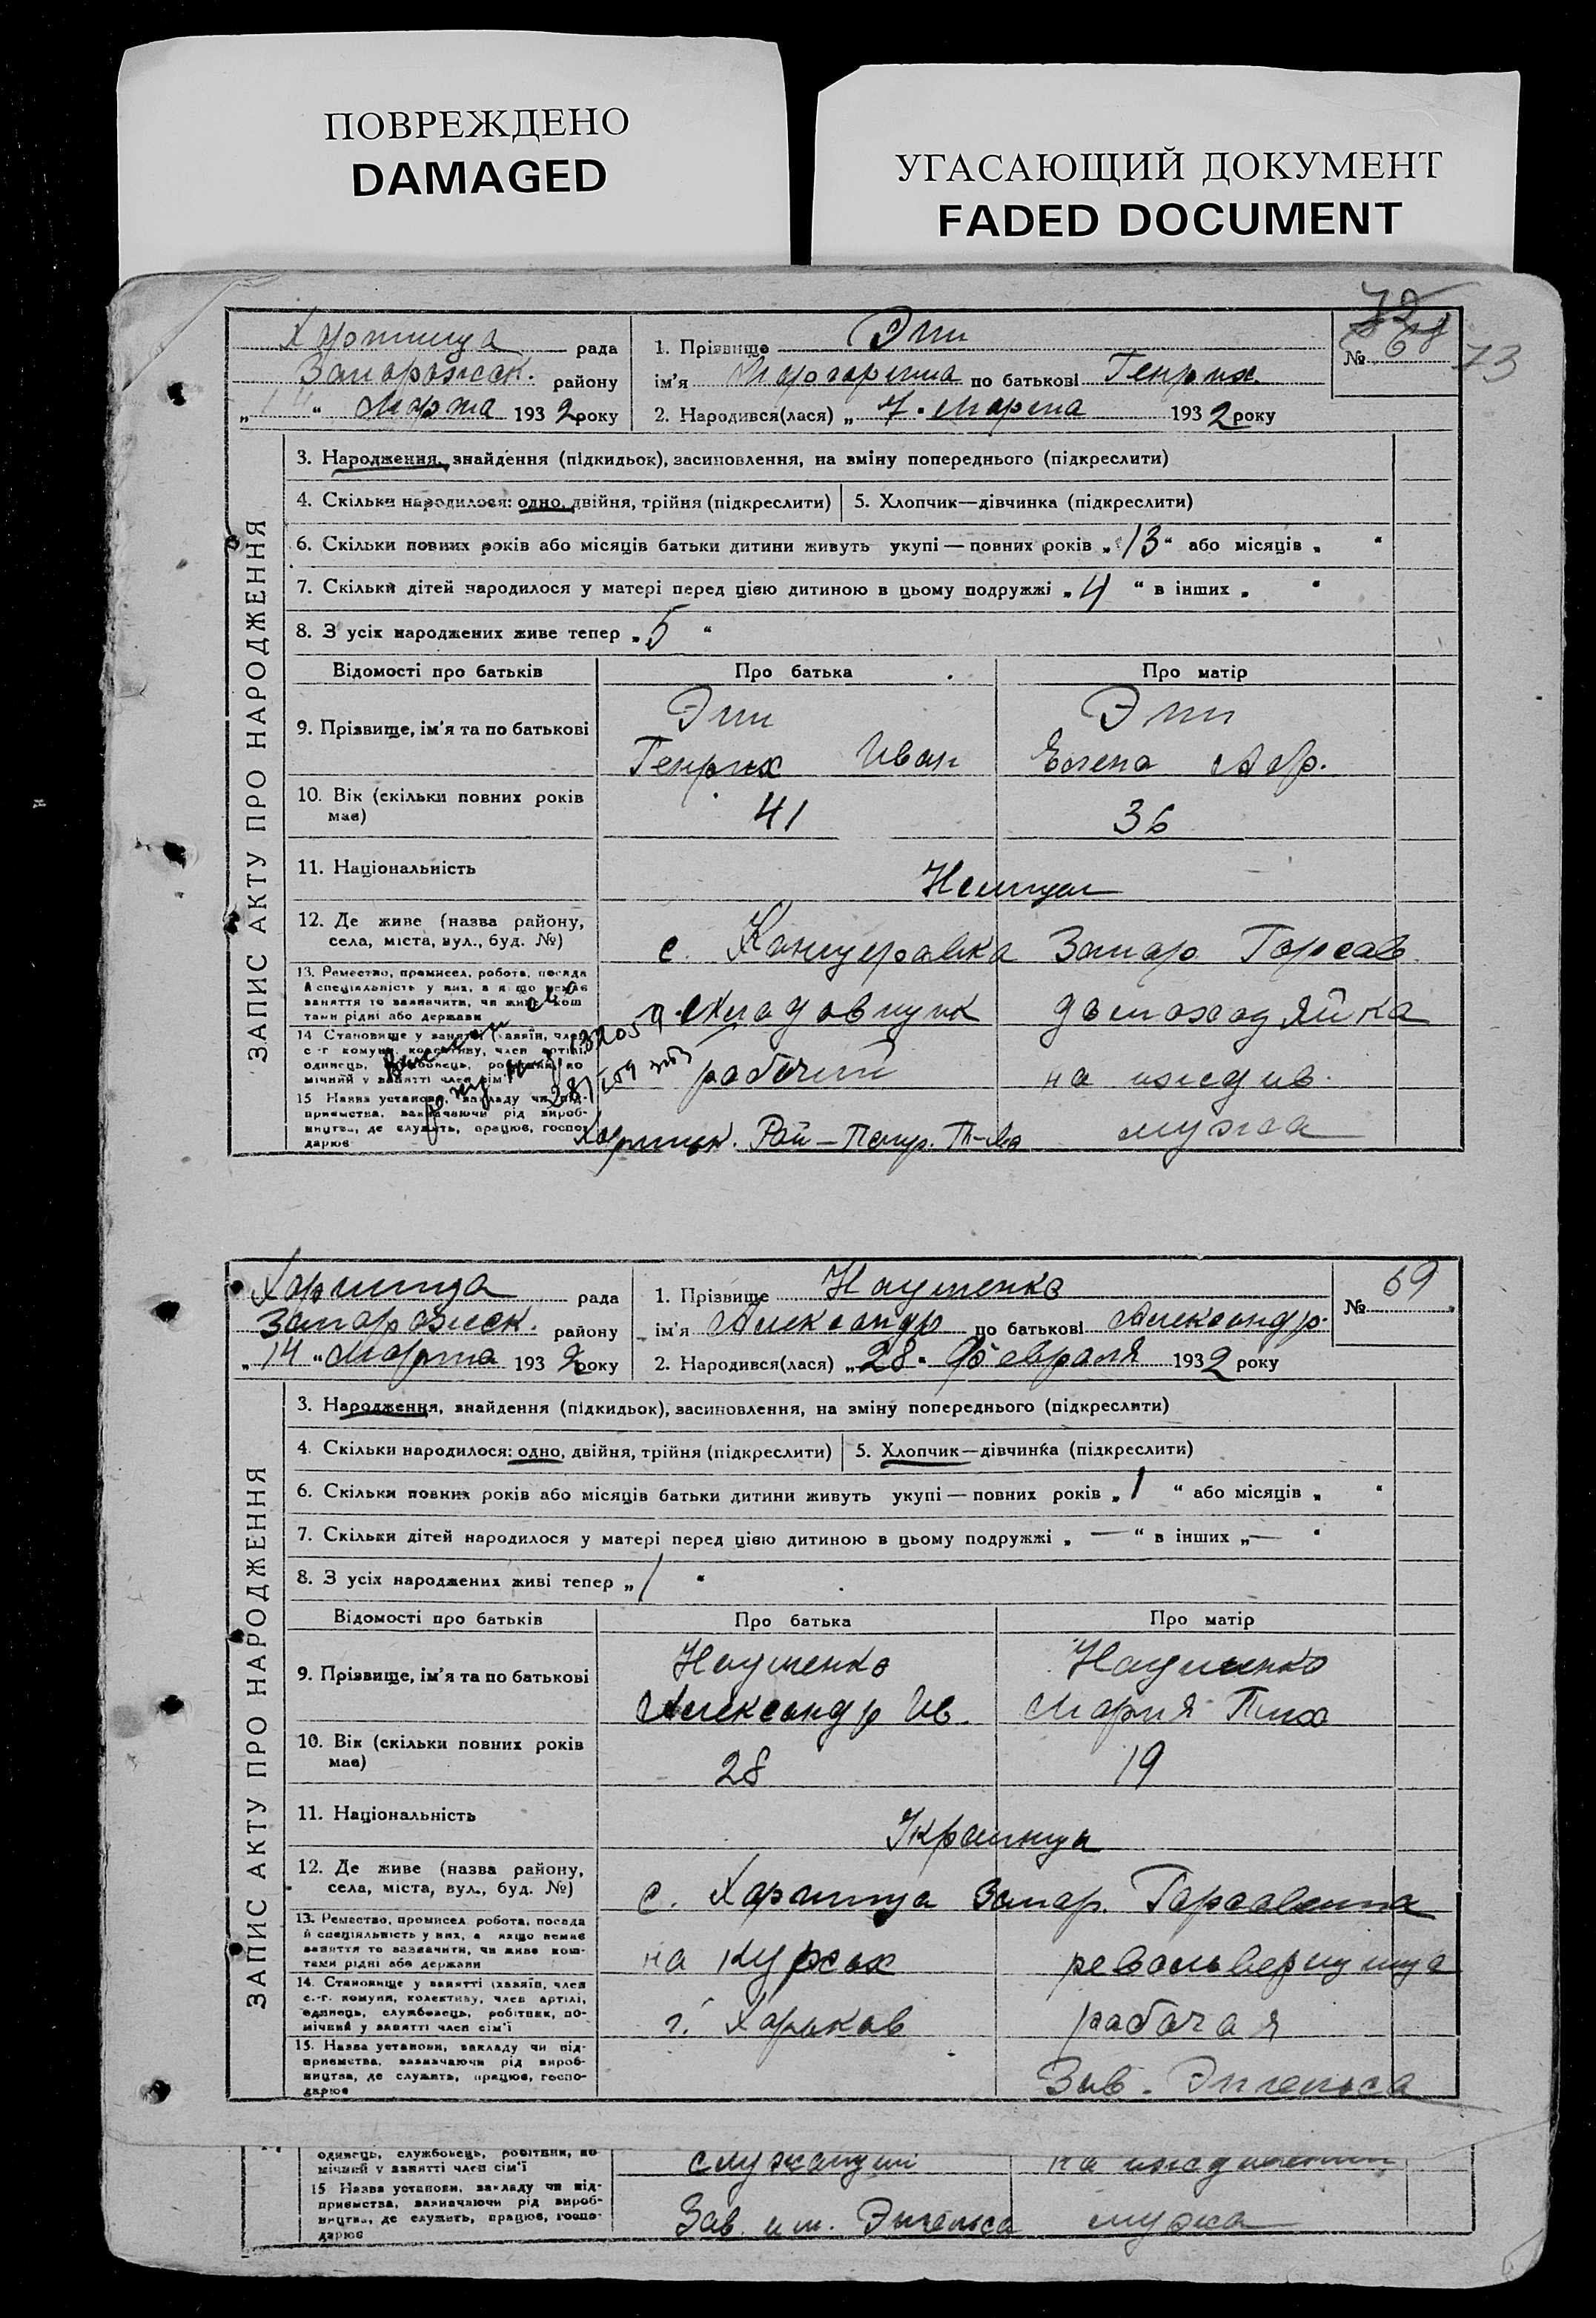 ПОВРЕЖДЕНО
DAMAGED
УГАСАЮЩИЙ ДОКУМЕНТ
FADED DOCUMENT
73
Хортица рада
Запорожск. району
„ “ Марта 1932 року
1. Прізвище Эпп
ім'я Маргарита по батькові Генрих.
2. Народився(лася) „ 7 “ Марта 1932 року
№ 68
ЗАПИС АКТУ ПРО НАРОДЖЕННЯ
3. Народження, знайдення (підкидьок), засиновлення, на зміну попереднього (підкреслити)
4. Скільки народилося: одно, двійня, трійня (підкреслити)
5. Хлопчик—дівчинка (підкреслити)
6. Скільки повних років або місяців батьки дитини живуть укупі — повних років „ 13 “ або місяців „ “
7. Скільки дітей народилося у матері перед цією дитиною в цьому подружжі „ 4 “ в інших „ “
8. З усіх народжених живе тепер „ 5 “
Відомості про батьків Про батька Про матір
9. Прізвище, ім'я та по батькові
Эпп Эпп
Генрих Иван Елена Абр.
10. Вік (скільки повних років має)
41 36
11. Національність
Немцы
12. Де живе (назва району, села, міста, вул., буд. №)
с. Канцеровка Запор. Горсов.
13. Ремество, промисел, робота, посада
й спеціяльність у них, а якщо немає
заняття то зазначити, чи живе кош-
тами рідні або держави
домохозяйка
14 Становище у занятті
рабочий на иждив.
15 Назва установи, закладу чи під-
приємства, зазначаючи рід вироб-
ництва, де служить, працює, госпо-
дарює
Рай – мужа
Хортица рада
Запорожск. району
„ 14 “ Марта 1932 року
1. Прізвище Науменко
ім'я Александр по батькові Александр.
2. Народився(лася) „ 28 “ Февраля 1932 року
№ 69
ЗАПИС АКТУ ПРО НАРОДЖЕННЯ
3. Народження, знайдення (підкидьок), засиновлення, на зміну попереднього (підкреслити)
4. Скільки народилося: одно, двійня, трійня (підкреслити)
5. Хлопчик—дівчинка (підкреслити)
6. Скільки повних років або місяців батьки дитини живуть укупі — повних років „ 1 “ або місяців „ “
7. Скільки дітей народилося у матері перед цією дитиною в цьому подружжі „ — “ в інших „ — “
8. З усіх народжених живі тепер „ 1 “
Відомості про батьків Про батька Про матір
9. Прізвище, ім'я та по батькові
Науменко Науменко
Александр Ив. Мария Тих
10. Вік (скільки повних років має)
28 19
11. Національність
Украинцы
12. Де живе (назва району, села, міста, вул., буд. №)
с. Хортица Запор. Горсовета
13. Ремество, промисел робота, посада
й спеціяльність у них, а якщо немає
заняття то зазначити, чи живе кош-
тами рідні або держави
на курсах револьверщица
14. Становище у занятті (хазяїн, член
с.-г. комуни, колективу, член артілі,
одинець, службовець, робітник, по-
мічний у занятті член сім'ї
г. Харьков рабочая
15. Назва установи, закладу чи під-
приємства, зазначаючи рід вироб-
ництва, де служить, працює, госпо-
дарює
Зав. Энгельса
одинець, службовець, робітник, по-
мічний у занятті член сім'ї
служащий на иждивении
15 Назва установи, закладу чи під-
приємства, зазначаючи рід вироб-
ництва, де служить, працює, госпо-
дарює
Зав. им. Энгельса мужа